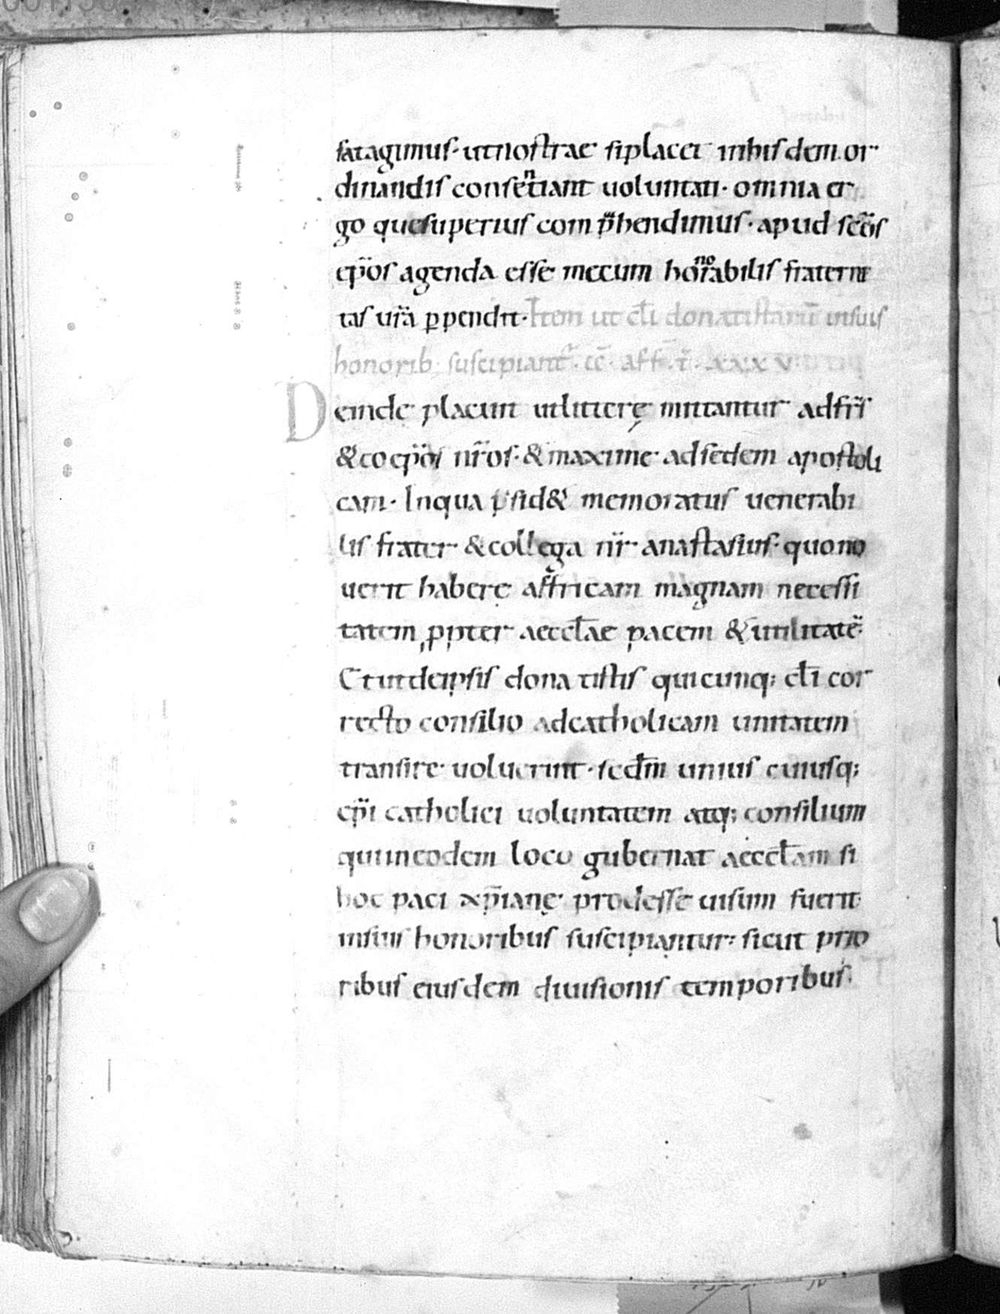 satagimus· ut nostrae si placet in hisdem or
dinandis consentiant uoluntati· omnia er
go que superius comp̄hendimus· apud sc̄os
ep̄os agenda esse mecum honorabilis fraterni
tas ur̄a ꝑpendit· Item ut cl̄i donatistarū in suis
honorib· suscipiant᷑· xxxv
Deinde placuit ut litterę mittantur ad fr̄s
& coep̄os nr̄os· & maxime ad sedem apostoli
cam· In qua p̄sid& memoratus uenerabi
lis frater & collega nr̄ anastasius· quo no
uerit habere affricam magnam necessi
tatem ꝓpter aeccl̄ae pacem & utilitatē·
Et ut de ipsis donatistis quicunq; cl̄i cor
recto consilio ad catholicam unitatem
transire uoluerint· sedm̄ unius cuiusq;
ep̄i catholici uoluntatem atq; consilium
qui in eodem loco gubernat aeccl̄am si
hoc paci xp̄ianę prodesse uisum fuerit
in suis honoribus suscipiantur: sicut prio
ribus eiusdem diuisionis temporibus·